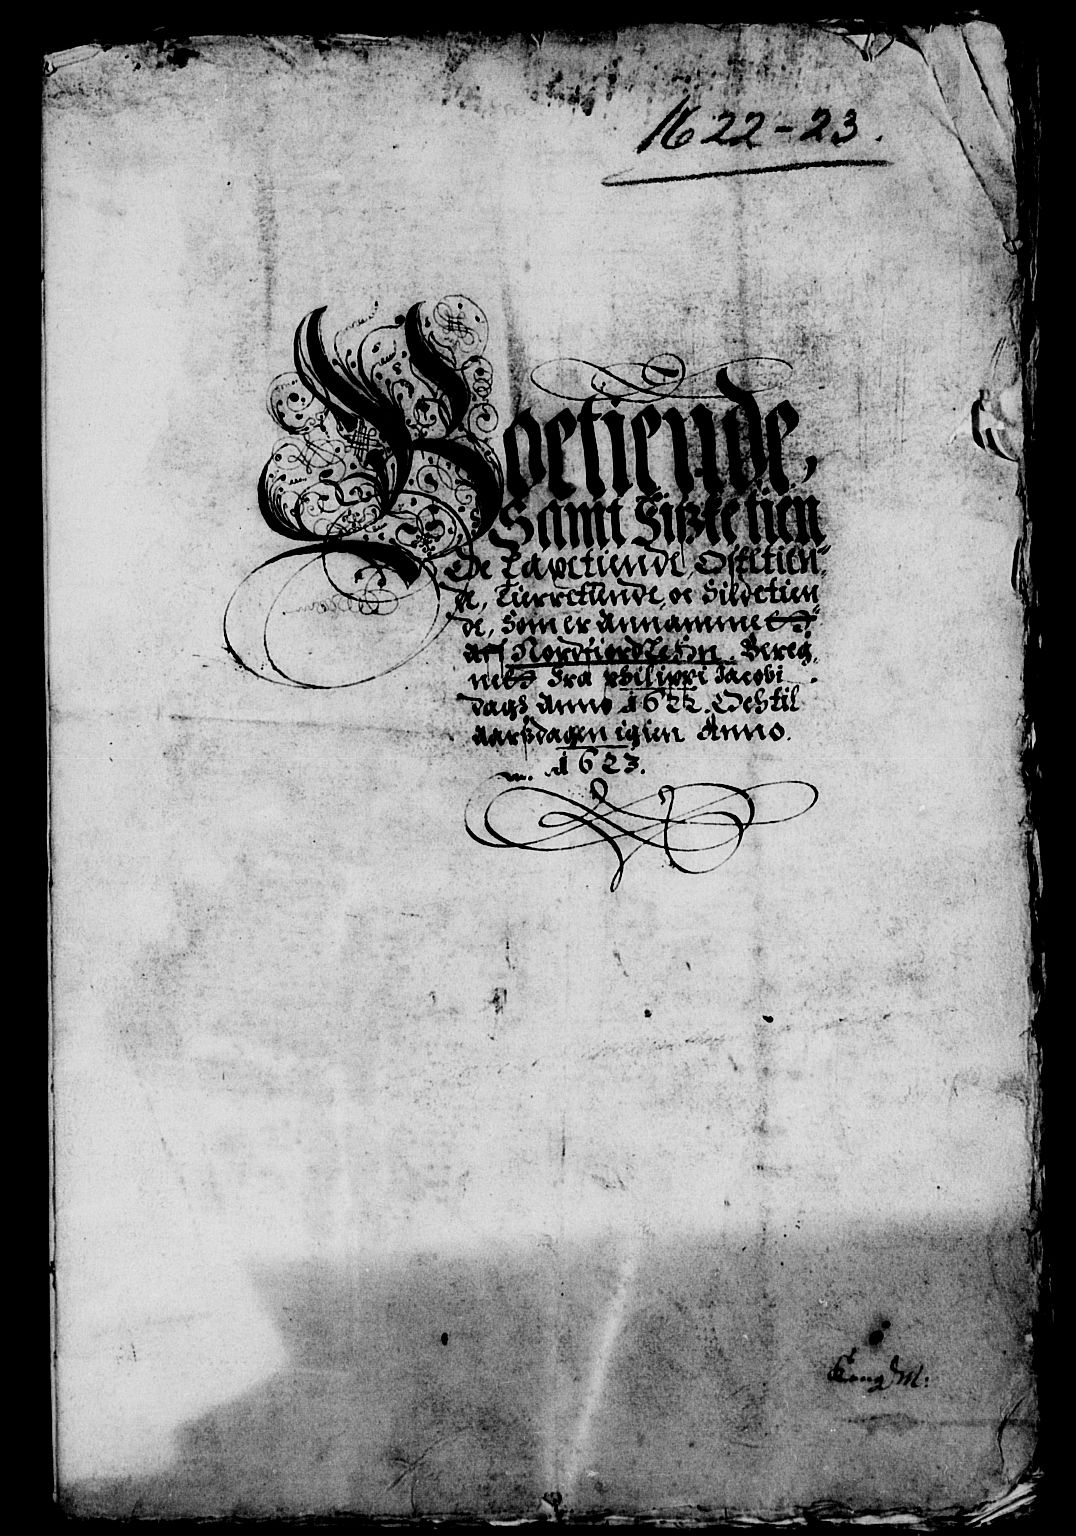 1622-23.
Koetiende,
Samt Fisketien
de Tapetiende, Ostetien-
de, Tierretiende, oc Sildetien
de, Som er Annammett
aff Nordfiord Lehn. Bereg,
nett Fra Philippi Jacobi
dagh Anno 1622. Och til
Aarsdagen igien Anno.
1623.
Kong M: